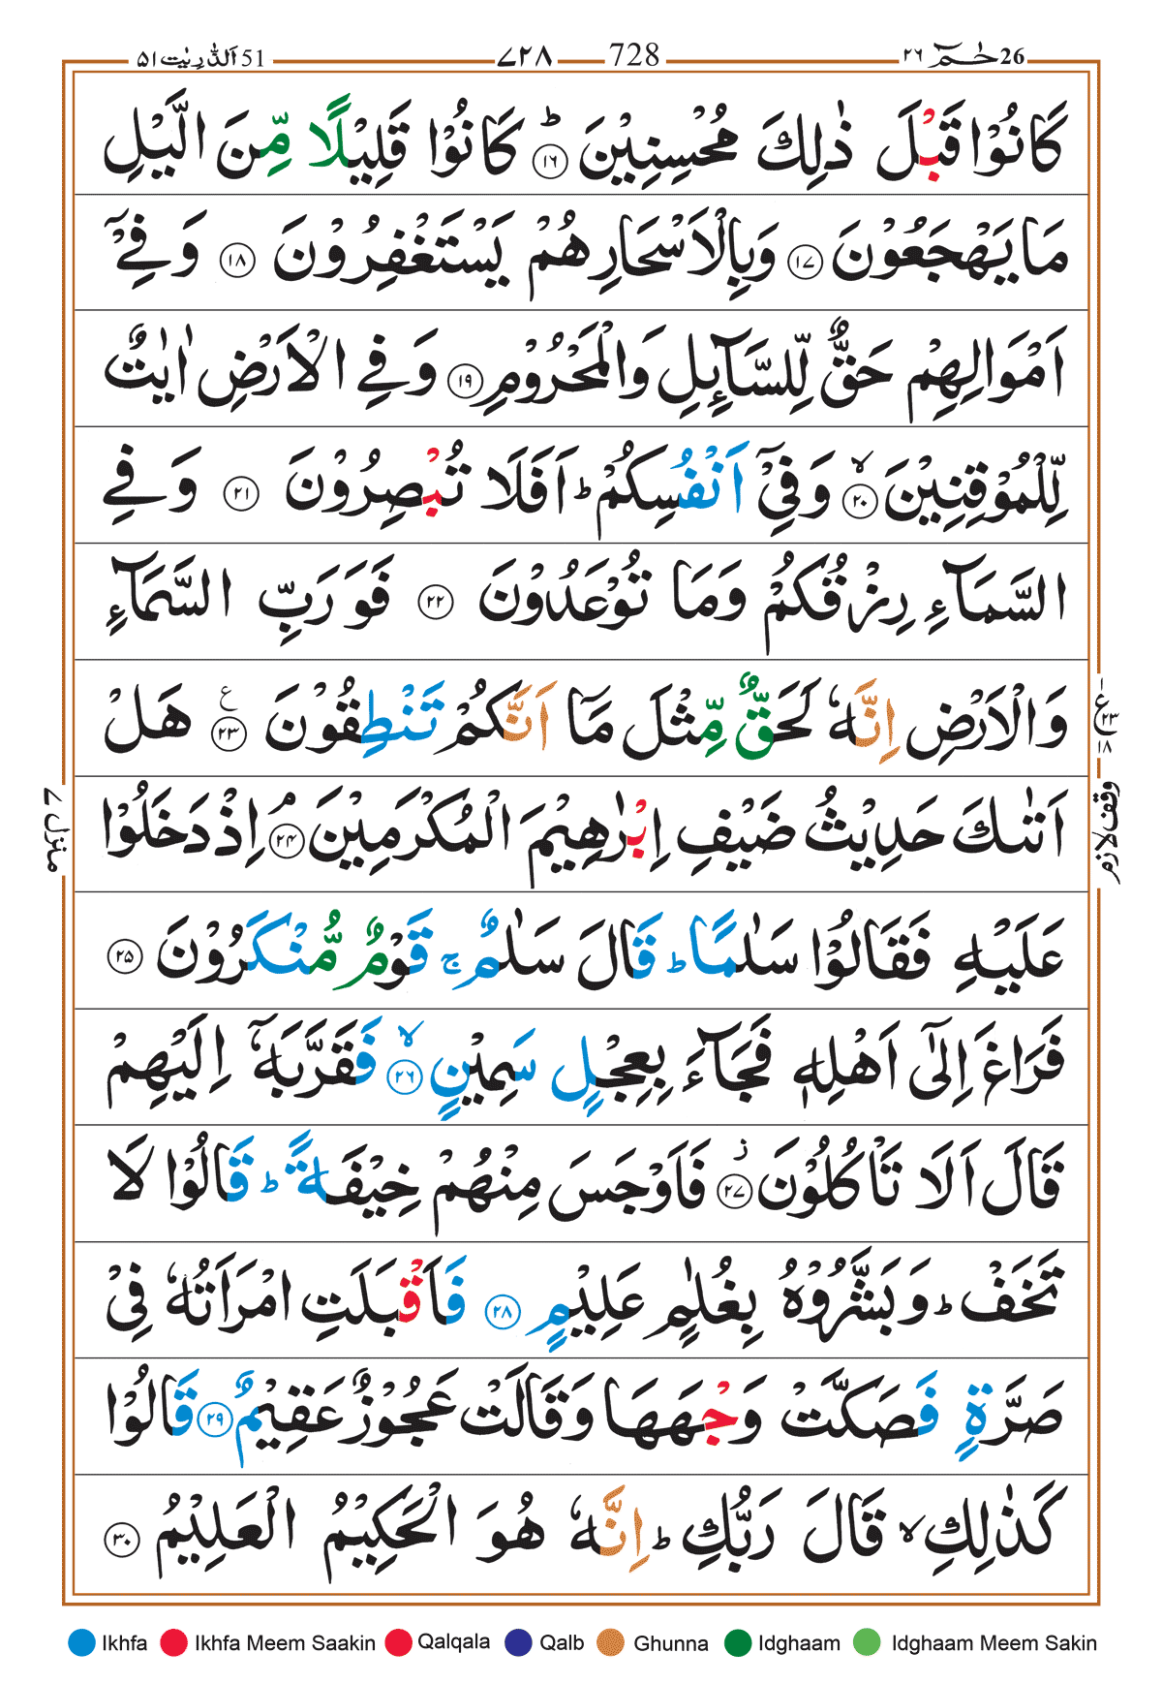 الذّٰریٰت ۵۱ 51 ۷۲۸ 728 حٰمٓ ۲۶ 26
كَانُوْا قَبْلَ ذٰلِكَ مُحْسِنِيْنَ ؕ ۱۶ كَانُوْا قَلِيْلًا مِّنَ الَّيْلِ
مَا يَهْجَعُوْنَ ۱۷ وَبِالْاَسْحَارِ هُمْ يَسْتَغْفِرُوْنَ ۱۸ وَفِيْۤ
اَمْوَالِهِمْ حَقٌّ لِّلسَّآئِلِ وَالْمَحْرُوْمِ ۱۹ وَفِي الْاَرْضِ اٰيٰتٌ
لِّلْمُوْقِنِيْنَ ۙ ۲۰ وَفِيْۤ اَنْفُسِكُمْ ؕ اَفَلَا تُبْصِرُوْنَ ۲۱ وَفِي
السَّمَآءِ رِزْقُكُمْ وَمَا تُوْعَدُوْنَ ۲۲ فَوَرَبِّ السَّمَآءِ
وَالْاَرْضِ اِنَّهٗ لَحَقٌّ مِّثْلَ مَاۤ اَنَّكُمْ تَنْطِقُوْنَ ۲۳ ع هَلْ
اَتٰىكَ حَدِيْثُ ضَيْفِ اِبْرٰهِيْمَ الْمُكْرَمِيْنَ ۘ ۲۴ اِذْ دَخَلُوْا
عَلَيْهِ فَقَالُوْا سَلٰمًا ؕ قَالَ سَلٰمٌ ۚ قَوْمٌ مُّنْكَرُوْنَ ۲۵
فَرَاغَ اِلٰٓى اَهْلِهٖ فَجَآءَ بِعِجْلٍ سَمِيْنٍ ۙ ۲۶ فَقَرَّبَهٗۤ اِلَيْهِمْ
قَالَ اَلَا تَاْكُلُوْنَ ز ۲۷ فَاَوْجَسَ مِنْهُمْ خِيْفَةً ؕ قَالُوْا لَا
تَخَفْ ؕ وَبَشَّرُوْهُ بِغُلٰمٍ عَلِيْمٍ ۲۸ فَاَقْبَلَتِ امْرَاَتُهٗ فِيْ
صَرَّةٍ فَصَكَّتْ وَجْهَهَا وَقَالَتْ عَجُوْزٌ عَقِيْمٌ ۲۹ قَالُوْا
كَذٰلِكِ ۙ قَالَ رَبُّكِ ؕ اِنَّهٗ هُوَ الْحَكِيْمُ الْعَلِيْمُ ۳۰
ع ۲۳ ۱۸
وقف لازم
منزل ۷
Ikhfa Ikhfa Meem Saakin Qalqala Qalb Ghunna Idghaam Idghaam Meem Sakin